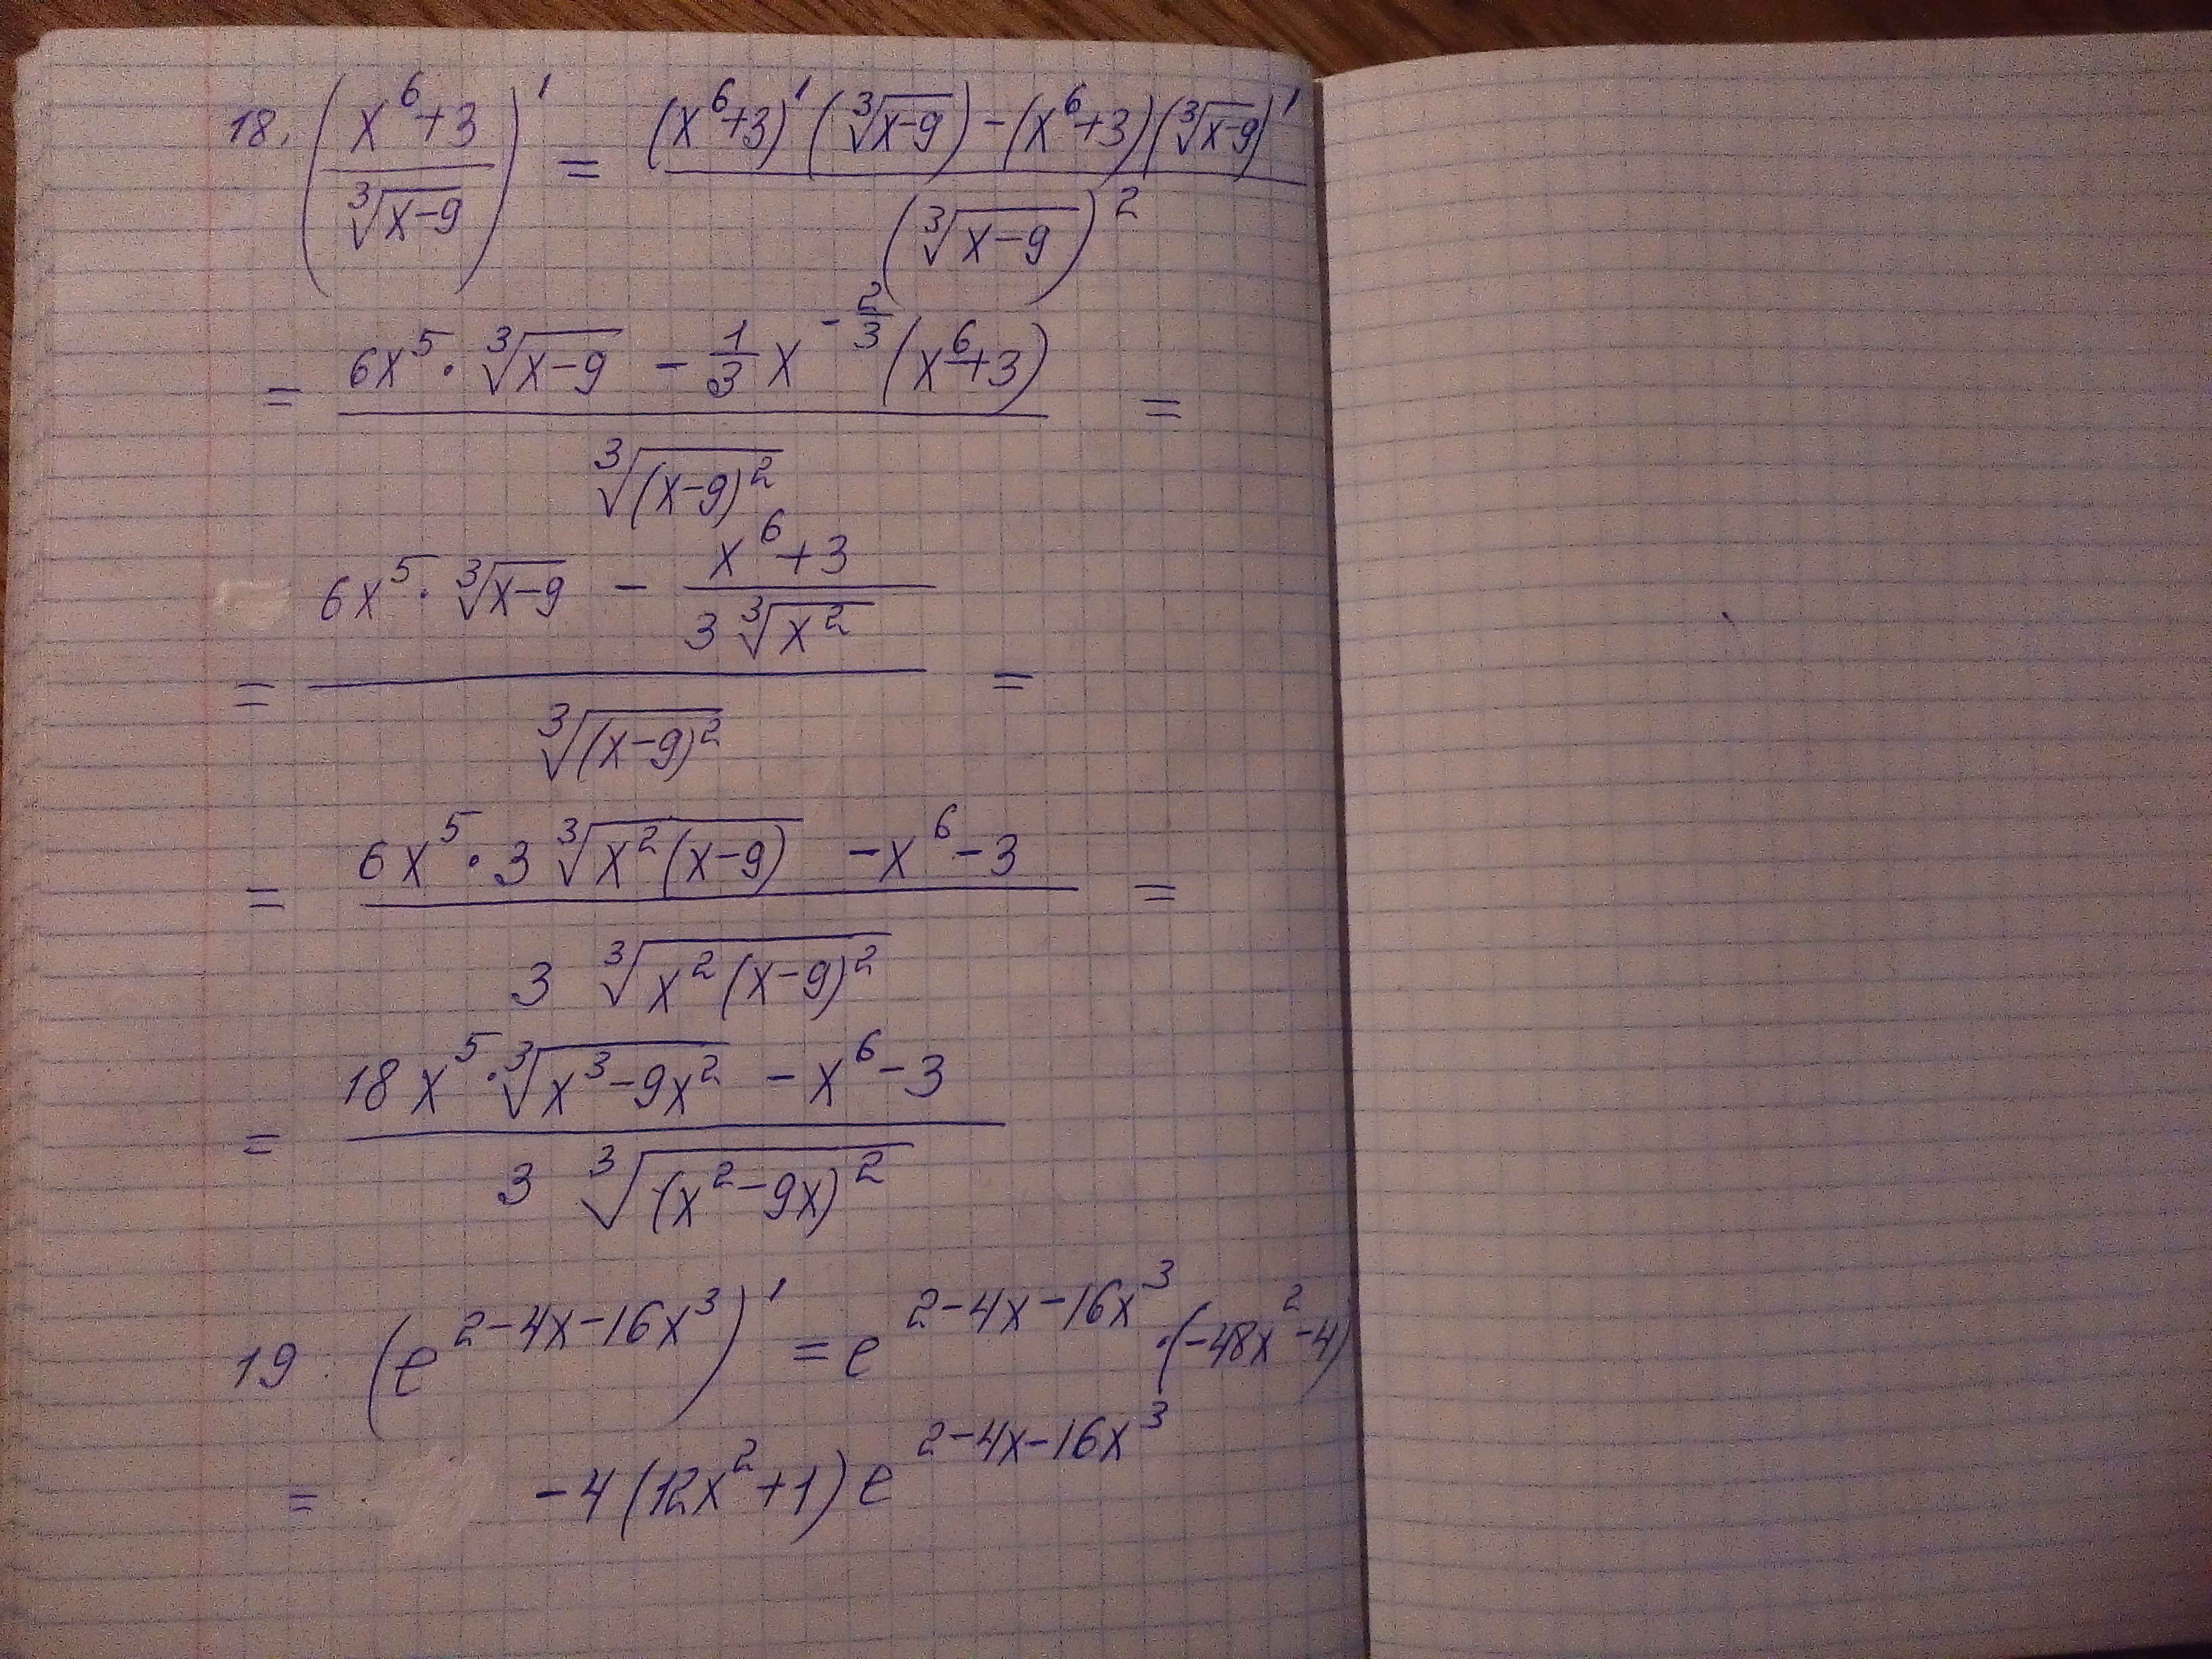 18. ((x⁶+3)/(∛(x-9)))' = ((x⁶+3)'(∛(x-9)) - (x⁶+3)(∛(x-9))')/((∛(x-9))²)
= (6x⁵·∛(x-9) - 1/3 x^(-2/3) (x⁶+3))/(∛((x-9)²)) =
= (6x⁵·∛(x-9) - (x⁶+3)/(3∛(x²)))/(∛((x-9)²)) =
= (6x⁵·3∛(x²(x-9)) - x⁶ - 3)/(3∛(x²(x-9)²)) =
= (18x⁵·∛(x³-9x²) - x⁶ - 3)/(3∛((x²-9x)²))
19. (e^(2-4x-16x³))' = e^(2-4x-16x³)·(-48x²-4)
= -4(12x²+1)e^(2-4x-16x³)